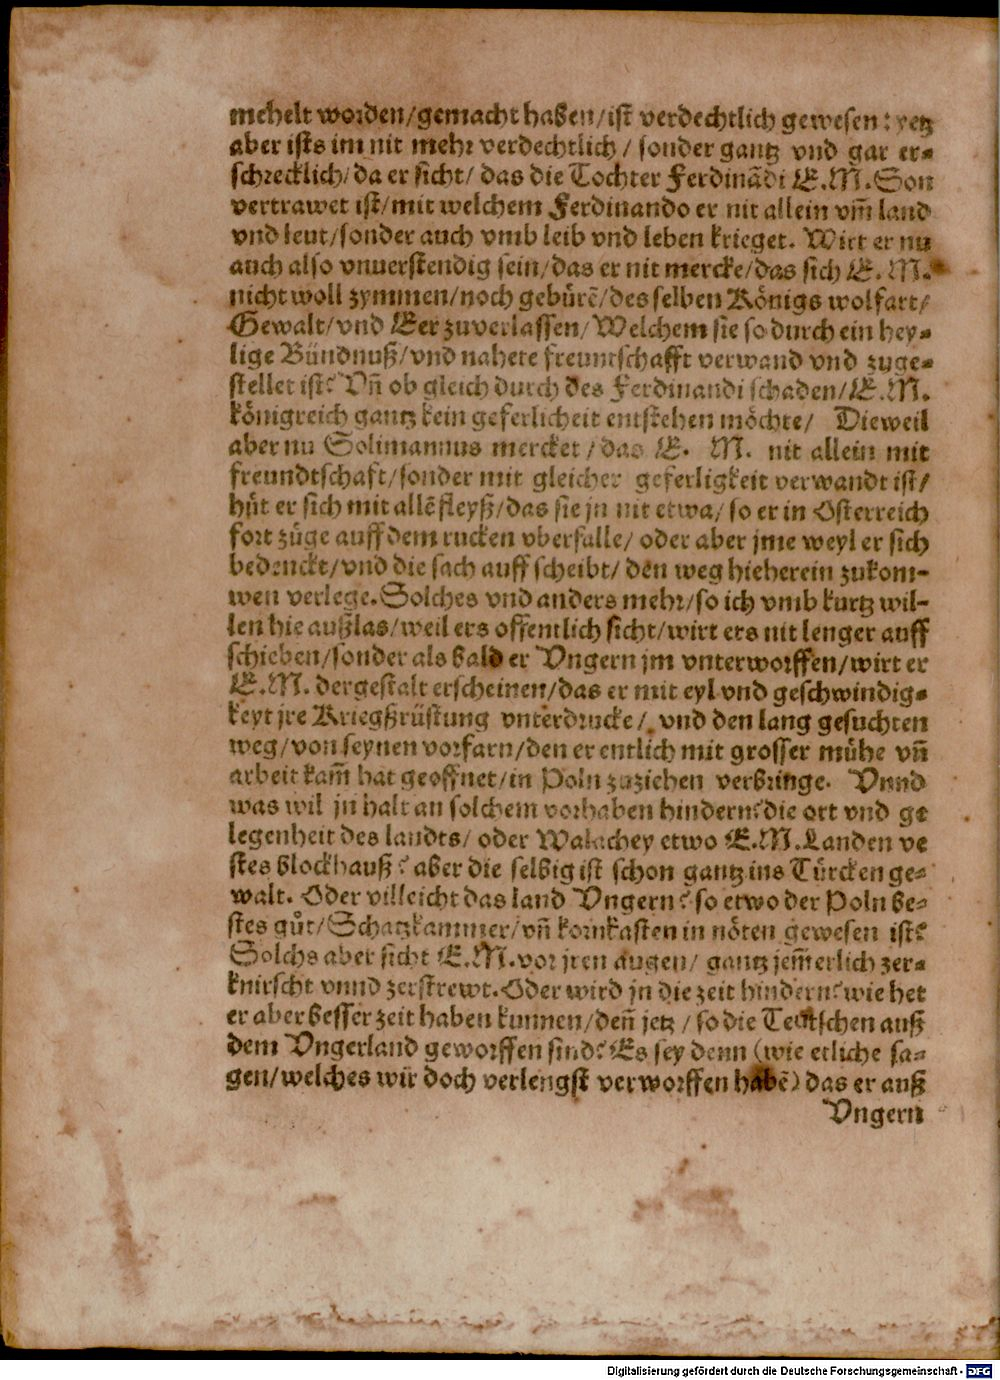 mehelt worden/gemacht haben/ist verdechtlich gewesen: yetz
aber ists im nit mehr verdechtlich/ sonder gantz vnd gar er-
schrecklich/da er sicht/ das die Tochter Ferdinādi E.M.Son
vertrawet ist/mit welchem Ferdinando er nit allein vm̃ land
vnd leut/sonder auch vmb leib vnd leben krieget. Wirt er nu
auch also vnuerstendig sein/das er nit mercke/das sich E.M.
nicht woll zymmen/noch gebürē/des selben Königs wolfart/
Gewalt/vnd Eer zuverlassen/Welchem sie so durch ein hey-
lige Bündnuß/vnd nahete freuntschafft verwand vnd zuge-
stellet ist? Vñ ob gleich durch des Ferdinandi schaden/E.M.
königreich gantz kein geferlicheit entstehen möchte/ Dieweil
aber nu Solimannus mercket/das E. M. nit allein mit
freundtschaft/sonder mit gleicher geferligkeit verwandt ist/
hüt er sich mit allē fleyß/das sie jn nit etwa/ so er in Osterreich
fort züge auff dem rucken vberfalle/ oder aber jme weyl er sich
bedenckt/vnd die sach auff scheibt/ den weg hieherein zukom-
wen verlege. Solches vnd anders mehr/so ich vmb kurtz wil-
len hie außlas/weil ers offentlich sicht/wirt ers nit lenger auff
schieben/sonder als bald er Vngern jm vnterworffen/wirt er
E.M. dergestalt erscheinen/das er mit eyl vnd geschwindig-
keyt jre Kriegßrüstung vnterdrucke/ vnd den lang gesuchten
weg/von seynen vorfarn/den er entlich mit grosser mühe vñ
arbeit kam̃ hat geoffnet/in Poln zuziehen verbringe. Vnnd
was wil jn halt an solchem vorhaben hindern? die ort vnd ge
legenheit des landts/ oder Walachey etwo E.M.Landen ve
stes blockhauß? aber die selbig ist schon gantz ins Türcken ge-
walt. Oder villeicht das land Vngern? so etwo der Poln be-
stes gůt/Schatzkammer/vñ kornkasten in nöten gewesen ist?
Solchs aber sicht E.M.vor jren augen/ gantz jem̃erlich zer-
knirscht vnnd zerstrewt. Oder wird jn die zeit hindern? wie het
er aber besser zeit haben kunnen/deñ jetz/so die Teutschen auß
dem Vngerland geworffen sind? Es sey denn (wie etliche sa-
gen/welches wir doch verlengst verworffen habē) das er auß
Vngern
Digitalisierung gefördert durch die Deutsche Forschungsgemeinschaft - DFG